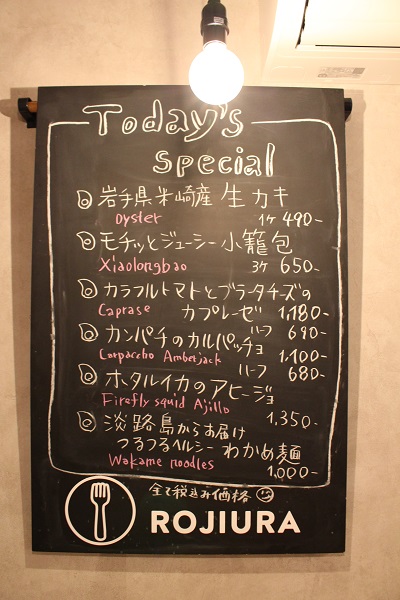 Today's
Special
岩手県米崎産 生カキ
Oyster 1ケ 490-
モチッとジューシー小籠包
Xiaolongbao 3ケ 650-
カラフルトマトとブラータチーズの
Caprase カプレーゼ 1,180-
ハーフ 690-
カンパチのカルパッチョ
Carpaccho Amberjack 1,100-
ハーフ 680-
ホタルイカのアヒージョ
Firefly squid Ajillo 1,350-
淡路島からお届け
つるつるヘルシー わかめ麺
Wakame noodles 1,000-
全て税込み価格
ROJIURA